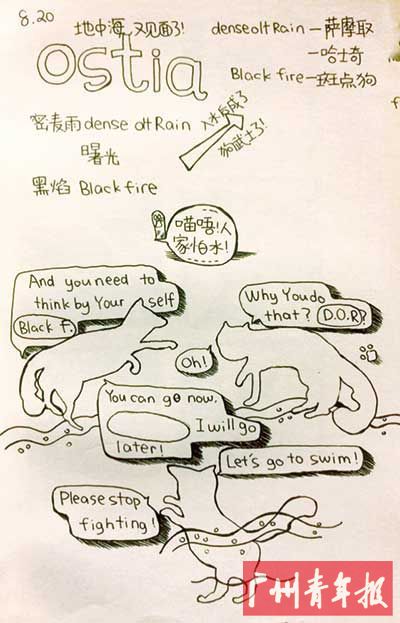 8.20
地中海,又见面了!
ostia
denseoltRain—萨摩耶
—哈士奇
Black fire—斑点狗
密麦雨dense oltRain
入水后成了
狗武士了!
曙光
黑焰 Black fire
喵唔!人
家怕水!
And you need to
think by Your self
Black f.
Why You do
that? D.O.R?
Oh!
You can go now,
I will go
later!
Let's go to swim!
Please stop
fighting!
广州青年报